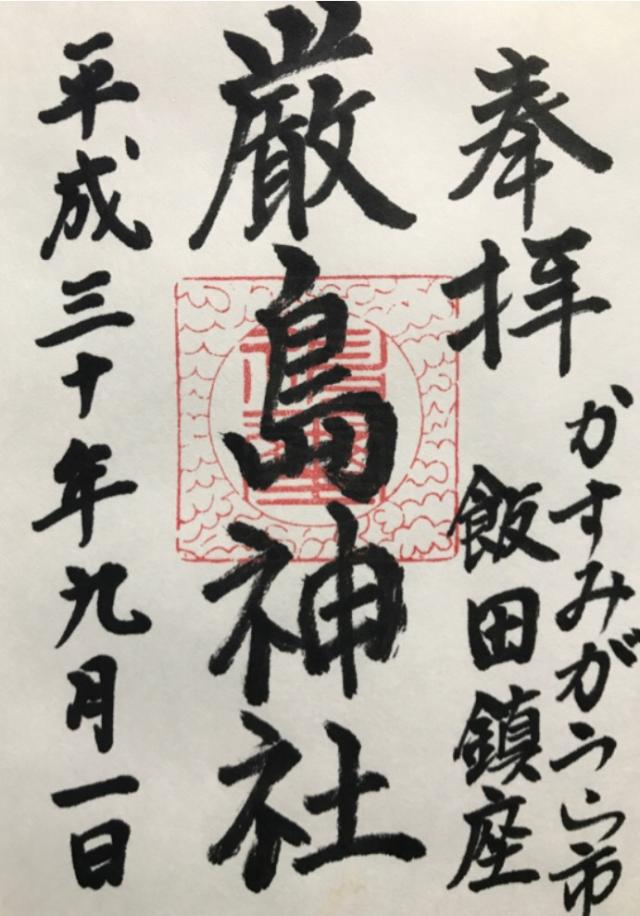 奉拝
かすみがうら市
飯田鎮座
厳島神社
平成三十年九月一日